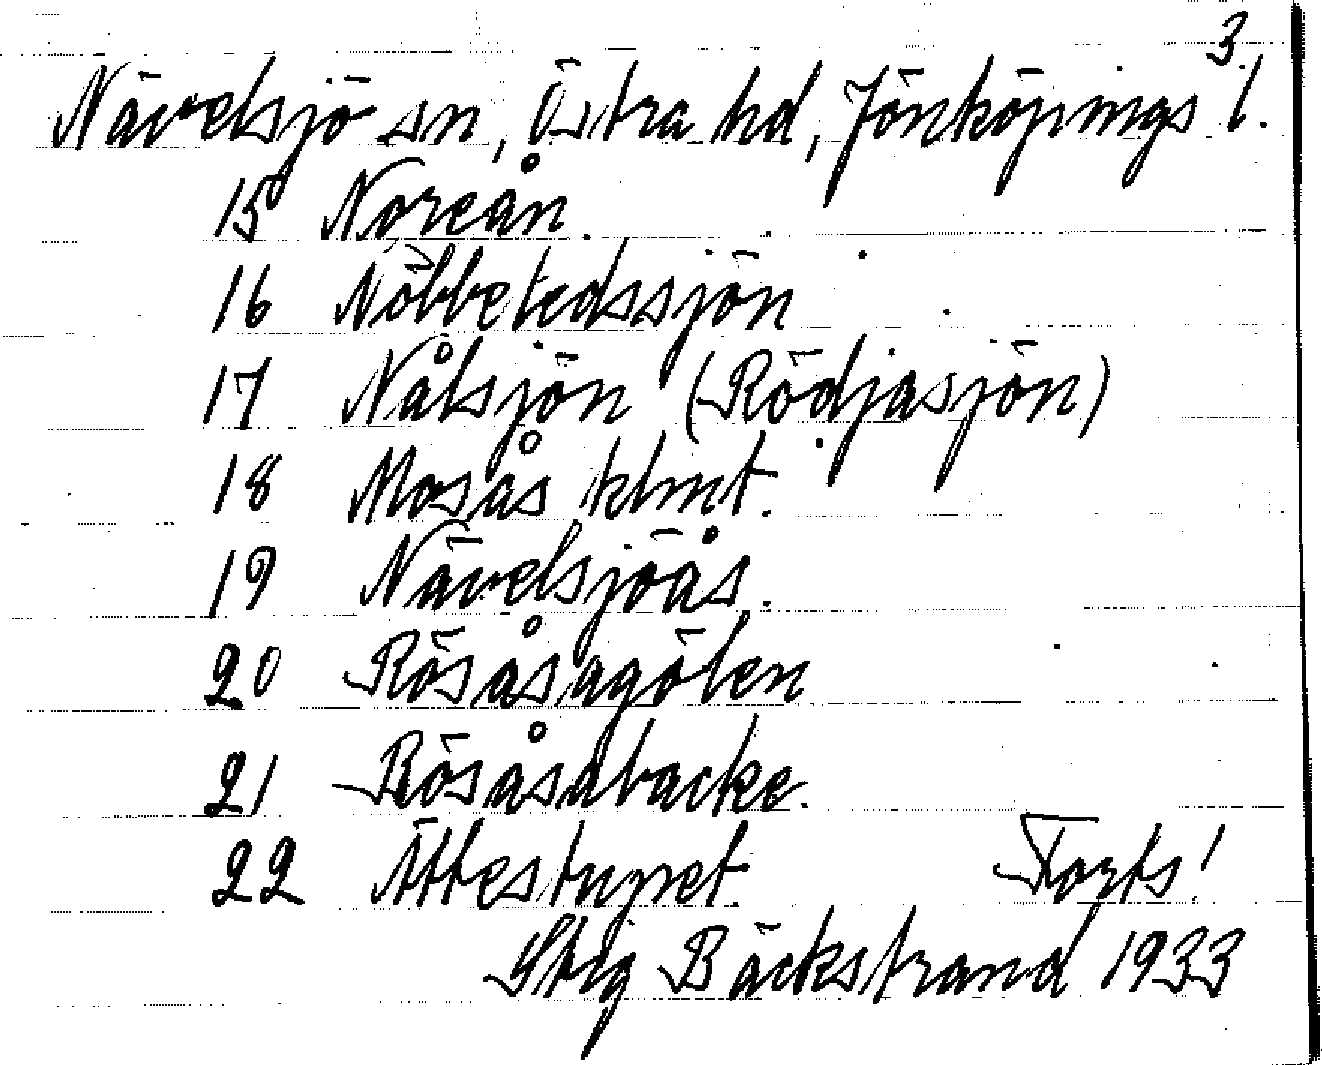 3.
Nävelsjö sn, Östra hd, Jönköpings l.
15 Noreån.
16 Nöbbetedssjön
17 Nålsjön (Rödjasjön)
18 Mosås klmt.
19 Nävelsjöås.
20 Rösåsagölen
21 Rösåsabacke.
22 Ättestupet. Forts!
Stig Bäckstrand 1933